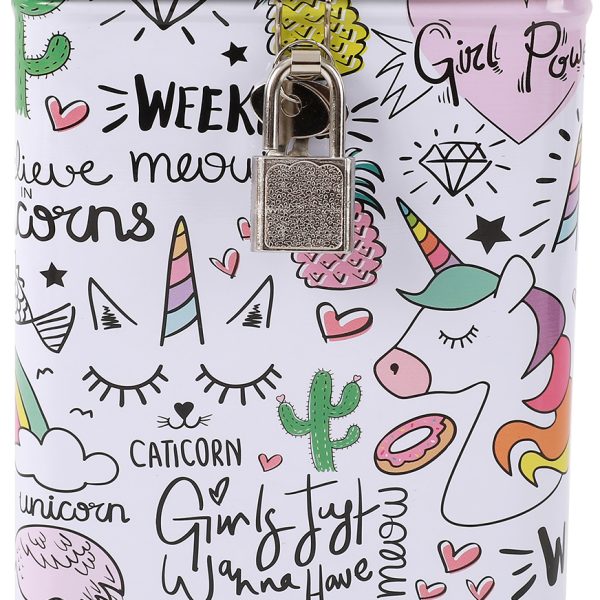 Girl Pow
WEEK
lieve meow
IN
corns
CATICORN
unicorn
Girls Just
Wanna Have
meow
W